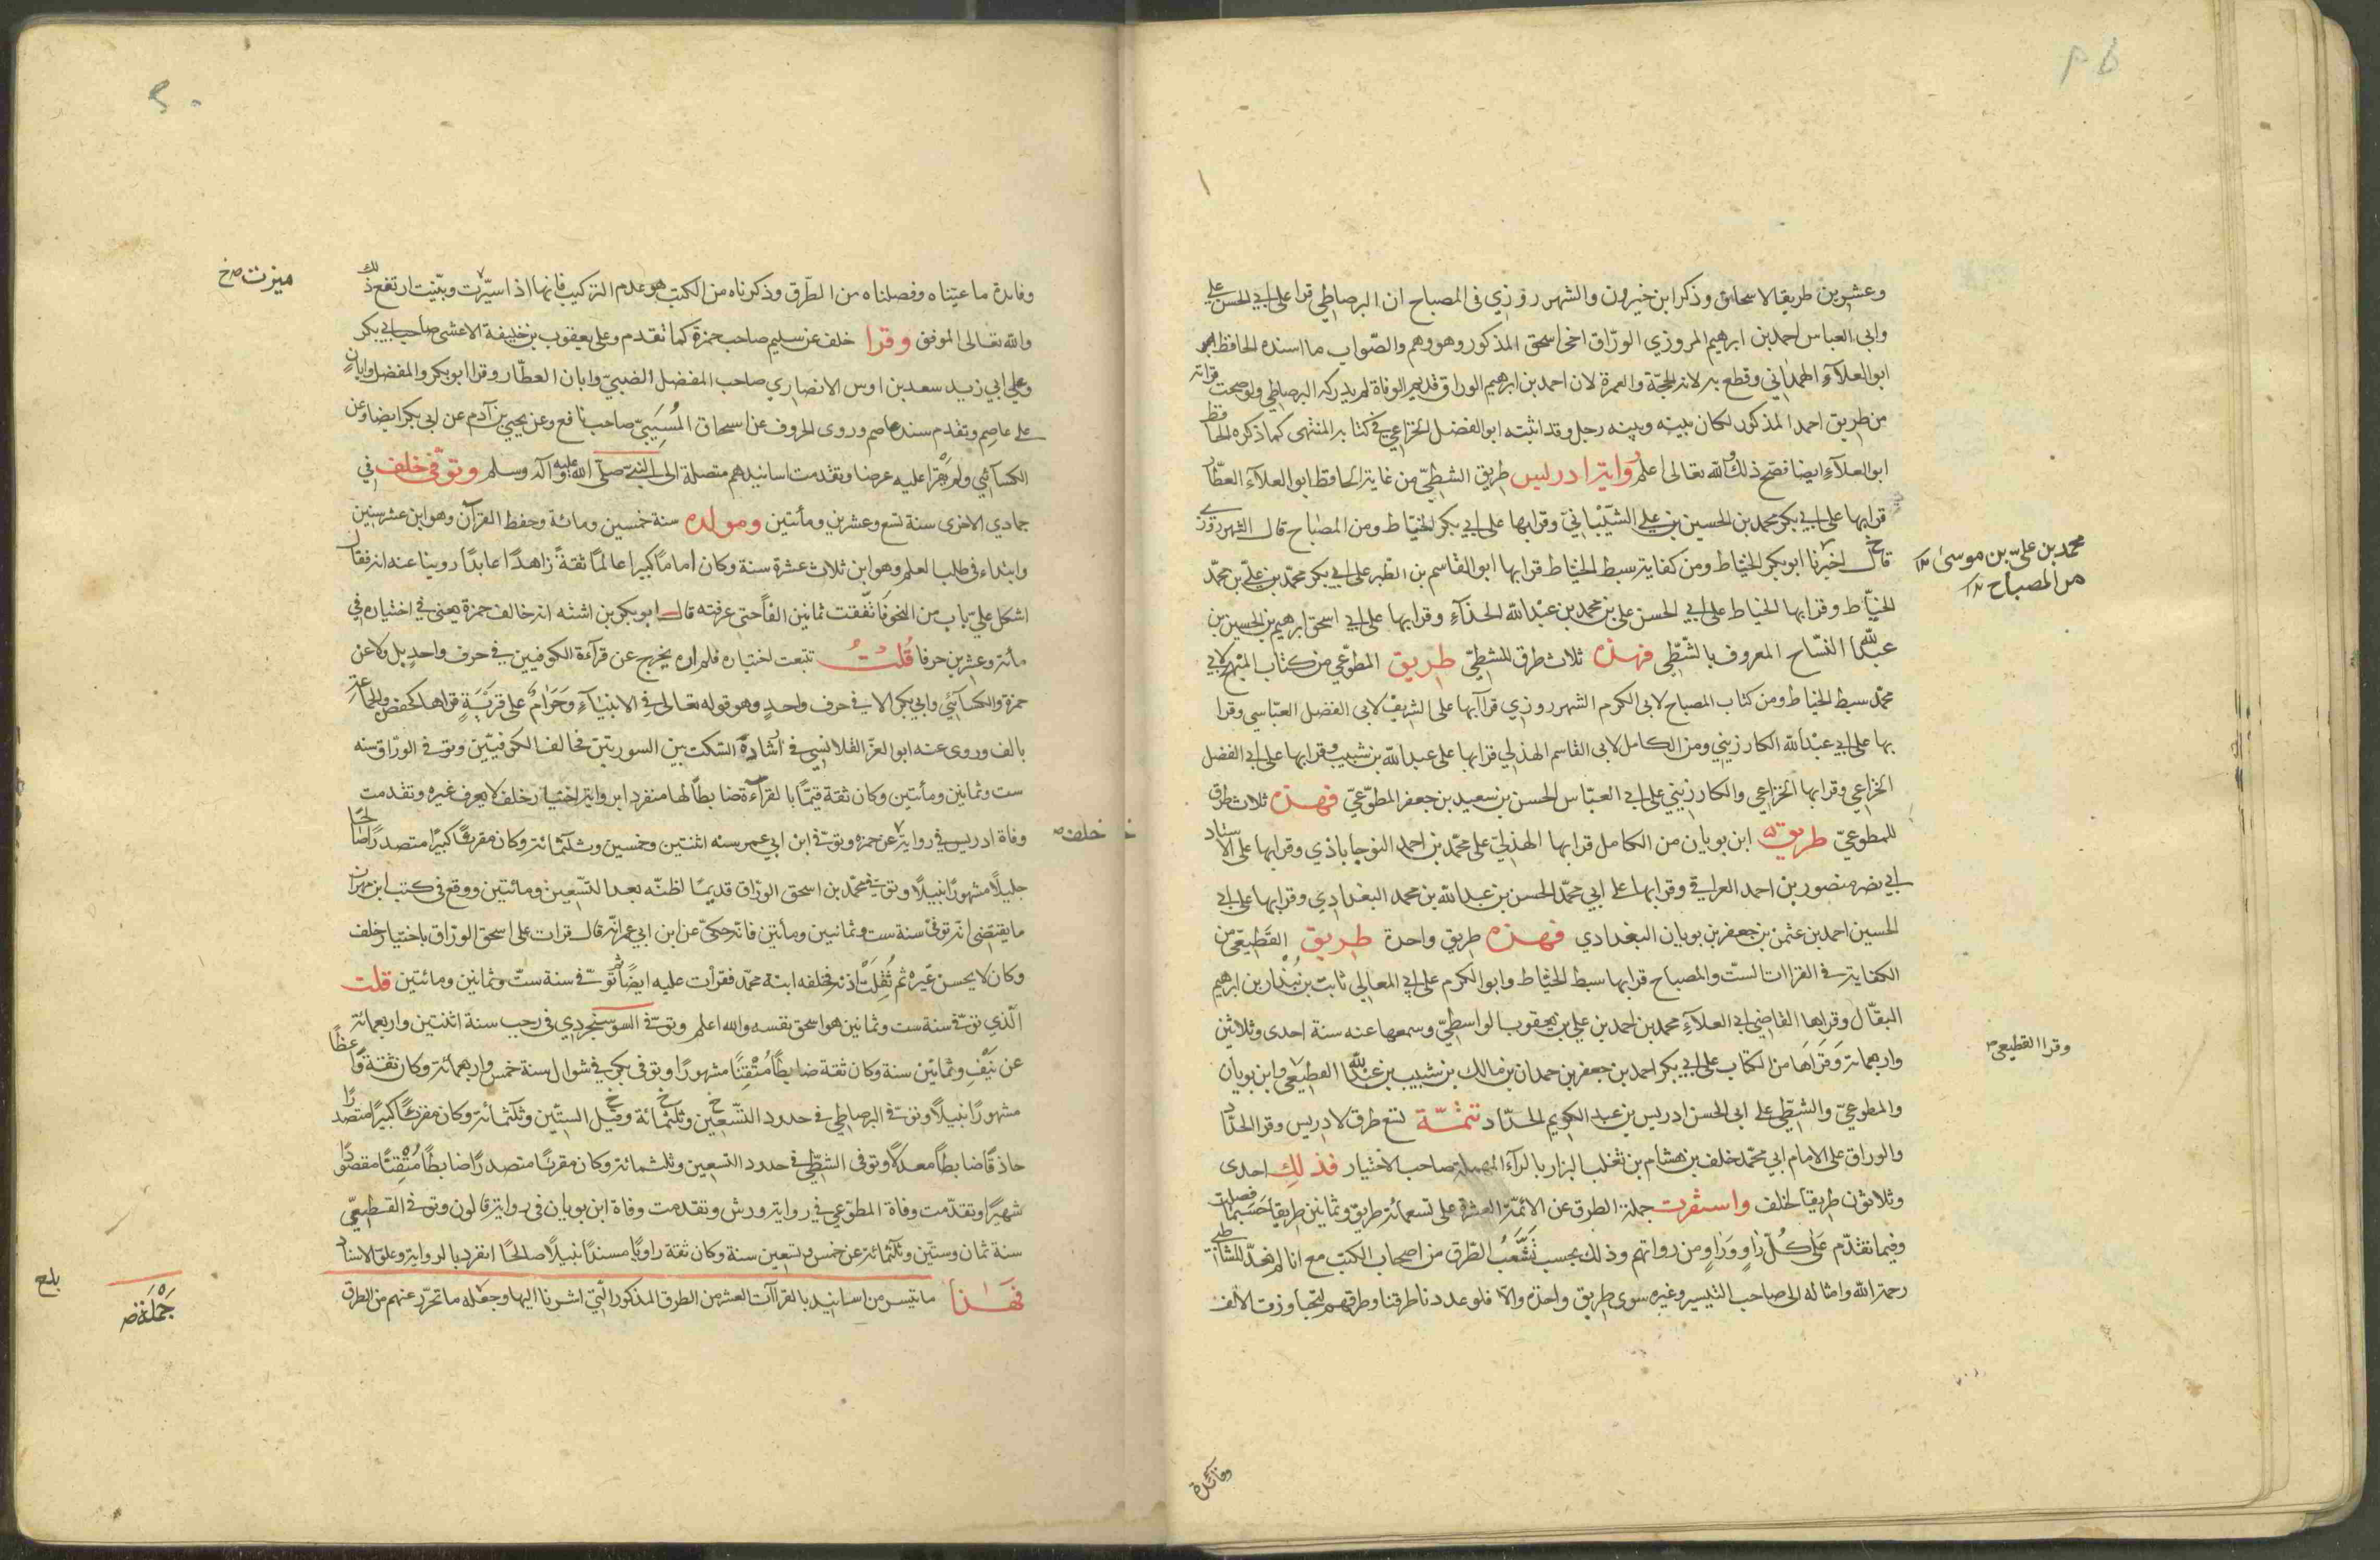 وعشرين طريقا لاسحاق وذكر ابن خيرون والشهرزوزي في المصباح ان البرصاطي قرا على ابي الحسن علي
وابي العباس احمد بن ابرهيم المروزي الورّاق اخي اسحق المذكور وهو وهم والصّواب ما اسنده الحافظ
ابو العلآء الهمذاني وقطع به لانه الحجّة والعمدة لان احمد بن ابرهيم الوراق قديم الوفاة لم يدركه البرصاطي ولو صحت قراته
من طريق احمد المذكور لكان بينه وبينه رجل وقد اثبته ابو الفضل الخزاعي في كتابه المنتهى كما ذكره الحافظ
ابو العلآء ايضا فصّح ذلك والله تعالى اعلم رواية ادريس طريق الشطيّ من غاية الحافظ ابو العلآء العطّار
قرا بها على ابي بكر محمد بن الحسين بن علي الشّيْبانيّ وقرا بها على ابي بكر الخيّاط ومن المصباح قال الشهرزوري
قال اخبرنا ابو بكر الخياط ومن كفاية سبط الخياط قرا بها ابو القاسم بن الطبر على ابي بكر محمّد بن عليّ بن محمّد
محمد بن علىّ بن موسى
من المصباح
الخيّاط وقرا بها الخياط على ابي الحسن على بن محمد بن عبْد الله الحذآء وقرا بها على ابي اسحق ابرهيم بن الحسين بن
عبد الله النسّاج المعروف بالشطّي فهذه ثلاث طرق للشطيّ طريق المطوّعي من كتاب المبهج لابي
محمّد سبط الخياط ومن كتاب المصباح لابى الكرم الشهرروزي قرآ بها على الشريف لابى الفضل العبّاسي وقرا
بها على ابي عبْد الله الكارزيني ومن الكامل لابى القاسم الهذلي قرا بها على عبد الله بن شبيب وقرا بها على ابي الفضل
الخزاعي وقرا بها الخزاعي والكارزيني على ابى العبّاس الحسن بن سعيد بن جعفر المطوّعيّ فهذه ثلاث طرق
للمطوعيّ طريق ابن بويان من الكامل قرا بها الهذليّ على محمّد بن احمد النوجاباذي وقرا بها على الاستاد
ابي نصر منصور بن احمد العراقي وقرا بها على ابي محمّد الحسن بن عبد الله بن محمد البغدادي وقرا بها على ابي
الحسين احمد بن عثمن بن جعفر بن بويان البغدادي فهذه طريق واحدة طريق القَطيعّى من
الكفاية في القراات الستّ والمصباح قرا بها سبط الخيّاط وابو الكرم على ابي المعالي ثابت بن بُندار بن ابرهيم
البقّال وقرا بها القاضي ابي العلآء محمد بن احمد بن علي بن يعقوب الواسطيّ وسمعها عنه سنة احدى وثلاثين
وقرا القطيعى
واربعمائة وَقراَها من الكتاب على ابي بكر احمد بن جعفر بن حمدان بن مالك بن شبيب بن عبد الله القطيعي وابن بويان
والمطوعيّ والشطّي على ابى الحسن ادريس بن عبد الكريم الحدّاد تتمّة تسع طرق لادريس وقرا الحدّاد
والوراق على الامام ابي محمّد خلف بن هشام بن ثعلب البزار بالرآء المهملة صاحب الاختيار فذلك احدى
وثلاثون طريقا لخلف واستقرت جملة الطرق عن الائمّة العشرة على تسعمائة طريق وثمانين طريقا حَسَبَما فصلت
وفيما تقدّم عَلى كُلّ رَاوٍ وَرَاوٍ من رواتهم وذلك بحسب تَشَعُّب الطّرق من اصحاب الكتب مع انا لم نعدّ للشاطبي
رحمة الله وامثاله الى صاحب التيسير وغيره سوى طريق واحدة والّا فلو عددنا طرقنا وطرقهم لتجاوزت الالف
وفائدة
وفائدة ما عيّناه وفصلناه من الطّرق وذكرناه من الكتب هو عدم التركيب فانها اذا سيّرت وبيّنت ارتفع ذلك
ميزت خ
والله تعالى الموفق وقرا خلف عن سليم صاحب حمزة كما تقدم وعلى يعقوب بن خليفة الاعشى صاحب ابي بكر
وعلى ابي زيد سعد بن اوس الانصاري صاحب المفضل الضبيّ وابان العطّار وقرا ابو بكر والمفضل وابان
على عاصم وتقدم سند عاصم وروى الحروف عن اسحاق المُسَيَبيّ صاحب نافع وعن يحيى بن آدم عن ابي بكر ايضا وعن
الكسآئي ولم يقرا عليه عرضا وتقدمت اسانيدهم متصلة الى النبيّ صلّى الله عليه وآله وسلم وتوفّي خلف في
جمادي الاخرى سنة تسع وعشرين ومأتين ومولده سنة خمسين ومائة وحفظ القرآن وهو ابن عشر سنين
وابتداء في طلب العلم وهو ابن ثلاث عشرة سنة وكان اماماً كبيرا عالماً ثقةً زاهدًا عابدًا روينا عنه انه قال
اشكل عليّ باب من النحو فانفقت ثمانين الفاً حتى عرفته قال ابو بكر بن اشته انه خالف حمزة يعنى في اختياره في
مأئة وعشرين حرفا قُلتُ تتبعت اختياره فلم اره يخرج عن قرآءة الكوفيين في حرف واحدٍ بل ولا عن
حمزة والكسآئي وابي بكر الا في حرف واحدٍ وهو قوله تعالى في الانبيآء وَحَرَامٌ عَلى قَرْيَةٍ قراها كحفض والجماعة
بالف وروى عنه ابو العز القلانسي في ارشاده السكت بين السورتين فخالف الكوفيّين وتوفي الورّاق سنه
ست وثمانين ومأتين وكان ثقة قيّماً بالقرآءة ضابطاً لها منفردا برواية اختيار خلف لا يعرف غيره وتقدمت
وفاة ادريس في رواية عن حمزه وتوفّي ابن ابي عمر سنه اثنتين وخمسين وثلثمائة وكان مقرئاً كبيرًا متصدرًا صالحًا
خلف
جليلًا مشهورًا نبيلًا وتوفي محمّد بن اسحق الورّاق قديمًا اظنّه بعد التسعين ومائتين ووقع في كتب ابن مهران
ما يقتضى انّه توفي سنة ست وثمانيين ومأتين فانّه حكىّ عن ابن ابي عمر انّه قال قرات على اسحق الورّاق باختيار خلف
وكان لا يحسن غيره ثم ثُقِلَتْ اذنه فخلفه ابنه محمّد فقرأت عليه ايضًا ثم توفّي في سنة ستّ وثمانين ومائتين قلت
الّذي توفّي سنة ست وثمانين هو اسحق بنفسه والله اعلم وتوفّي السوسنجردي في رجب سنة اثنتين واربعمائة
عن نَيّفٍ وثمانين سنة وكان ثقة ضابطاً مُتْقِنَّا مشهورًا وتوفي بكر في شوال سنة خمس واربعمائة وكان ثقة واعظاً
مشهورًا نبيلاً وتوفي البرصاطي في حدود التسْعين وثلثمائة وقيل الستّين وثلثمائة وكان مقرئاً كبيرًا متصدرًا
حاذقًا ضابطاً معدلًا وتوفى الشطّي في حدود التسعين وثلثمائة وكان مقرئًا متصدرًا ضابطًا مُتْقِنًا مقصودًا
شهيرًا وتقدّمت وفاة المطوّعي في رواية ورش وتقدمت وفاة ابن بويان في رواية قالون وتوفّي القطيعّي
سنة ثمان وستّين وثلثمائة عن خمس وتسعين سنة وكان ثقة راويًا مسندًا نبيلاً صالحًا انفرد بالرواية وعلو الاسناد
فهَذا ما تيسر من اسانيد بالقراآت العشر من الطرق المذكورة الّتي اشرنا اليها وجعله ما تحرّر عنهم من الطرق
جُمْلَة
بلغ